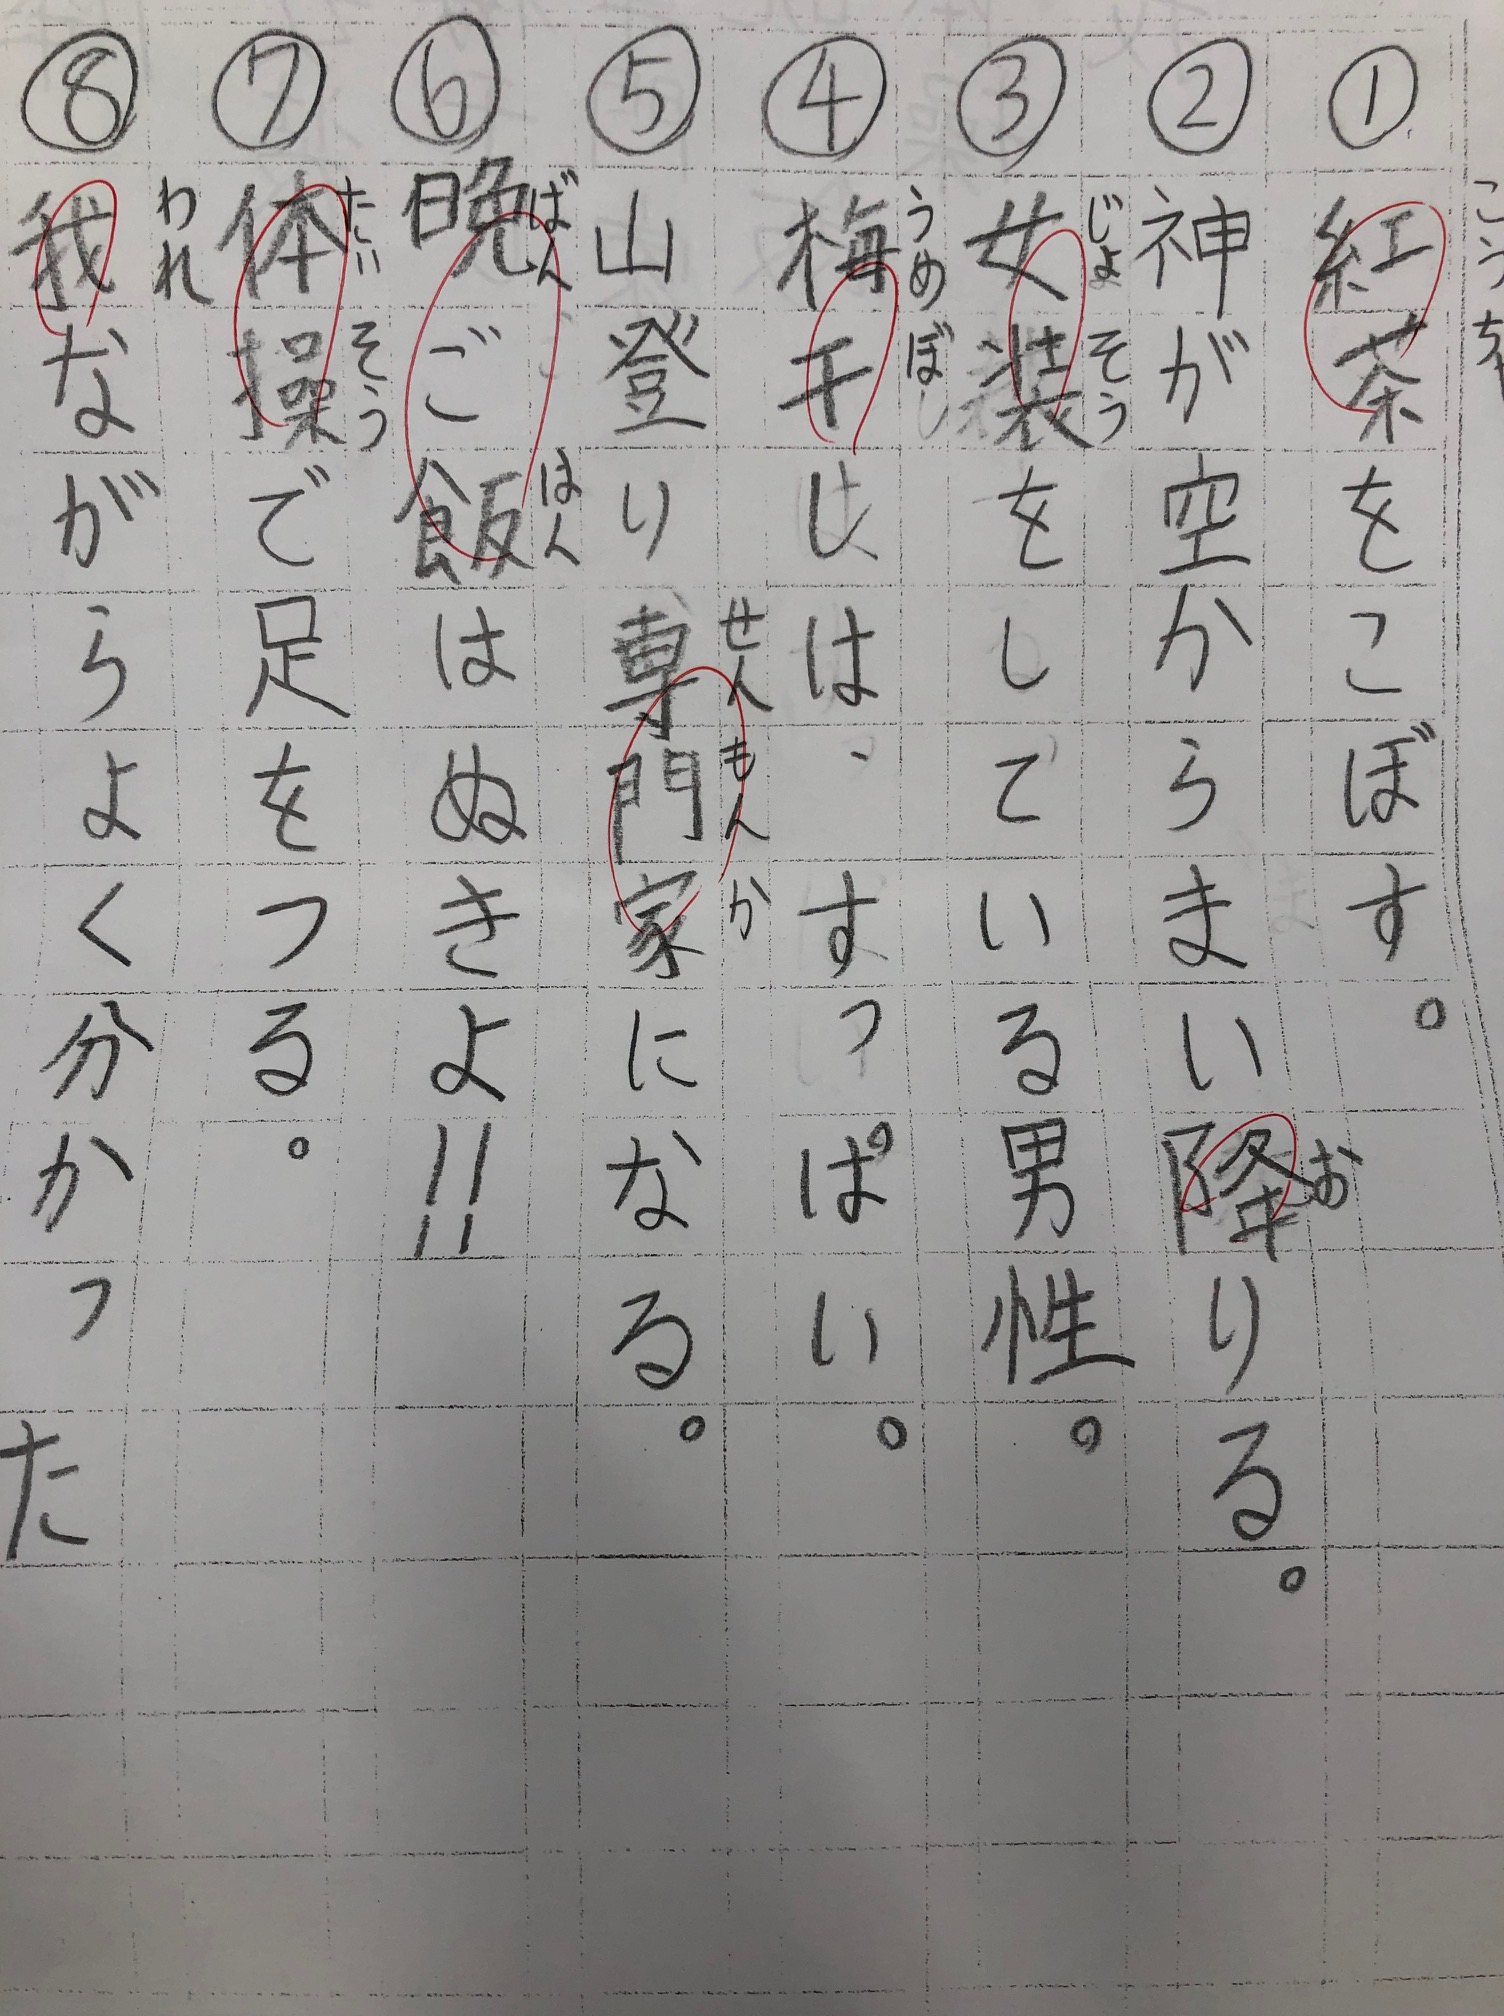 ① 紅茶をこぼす。
こうちゃ
② 神が空からまい降りる。
お
③ 女装をしている男性。
じょそう
④ 梅干しは、すっぱい。
うめぼし
⑤ 山登り専門家になる。
せんもんか
⑥ 晩ご飯はぬきよ!!
ばん はん
⑦ 体操で足をつる。
たいそう
⑧ 我ながらよく分かった
われ